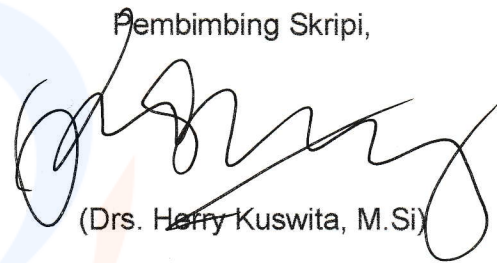 Pembimbing Skripi,
(Drs. Herry Kuswita, M.Si)